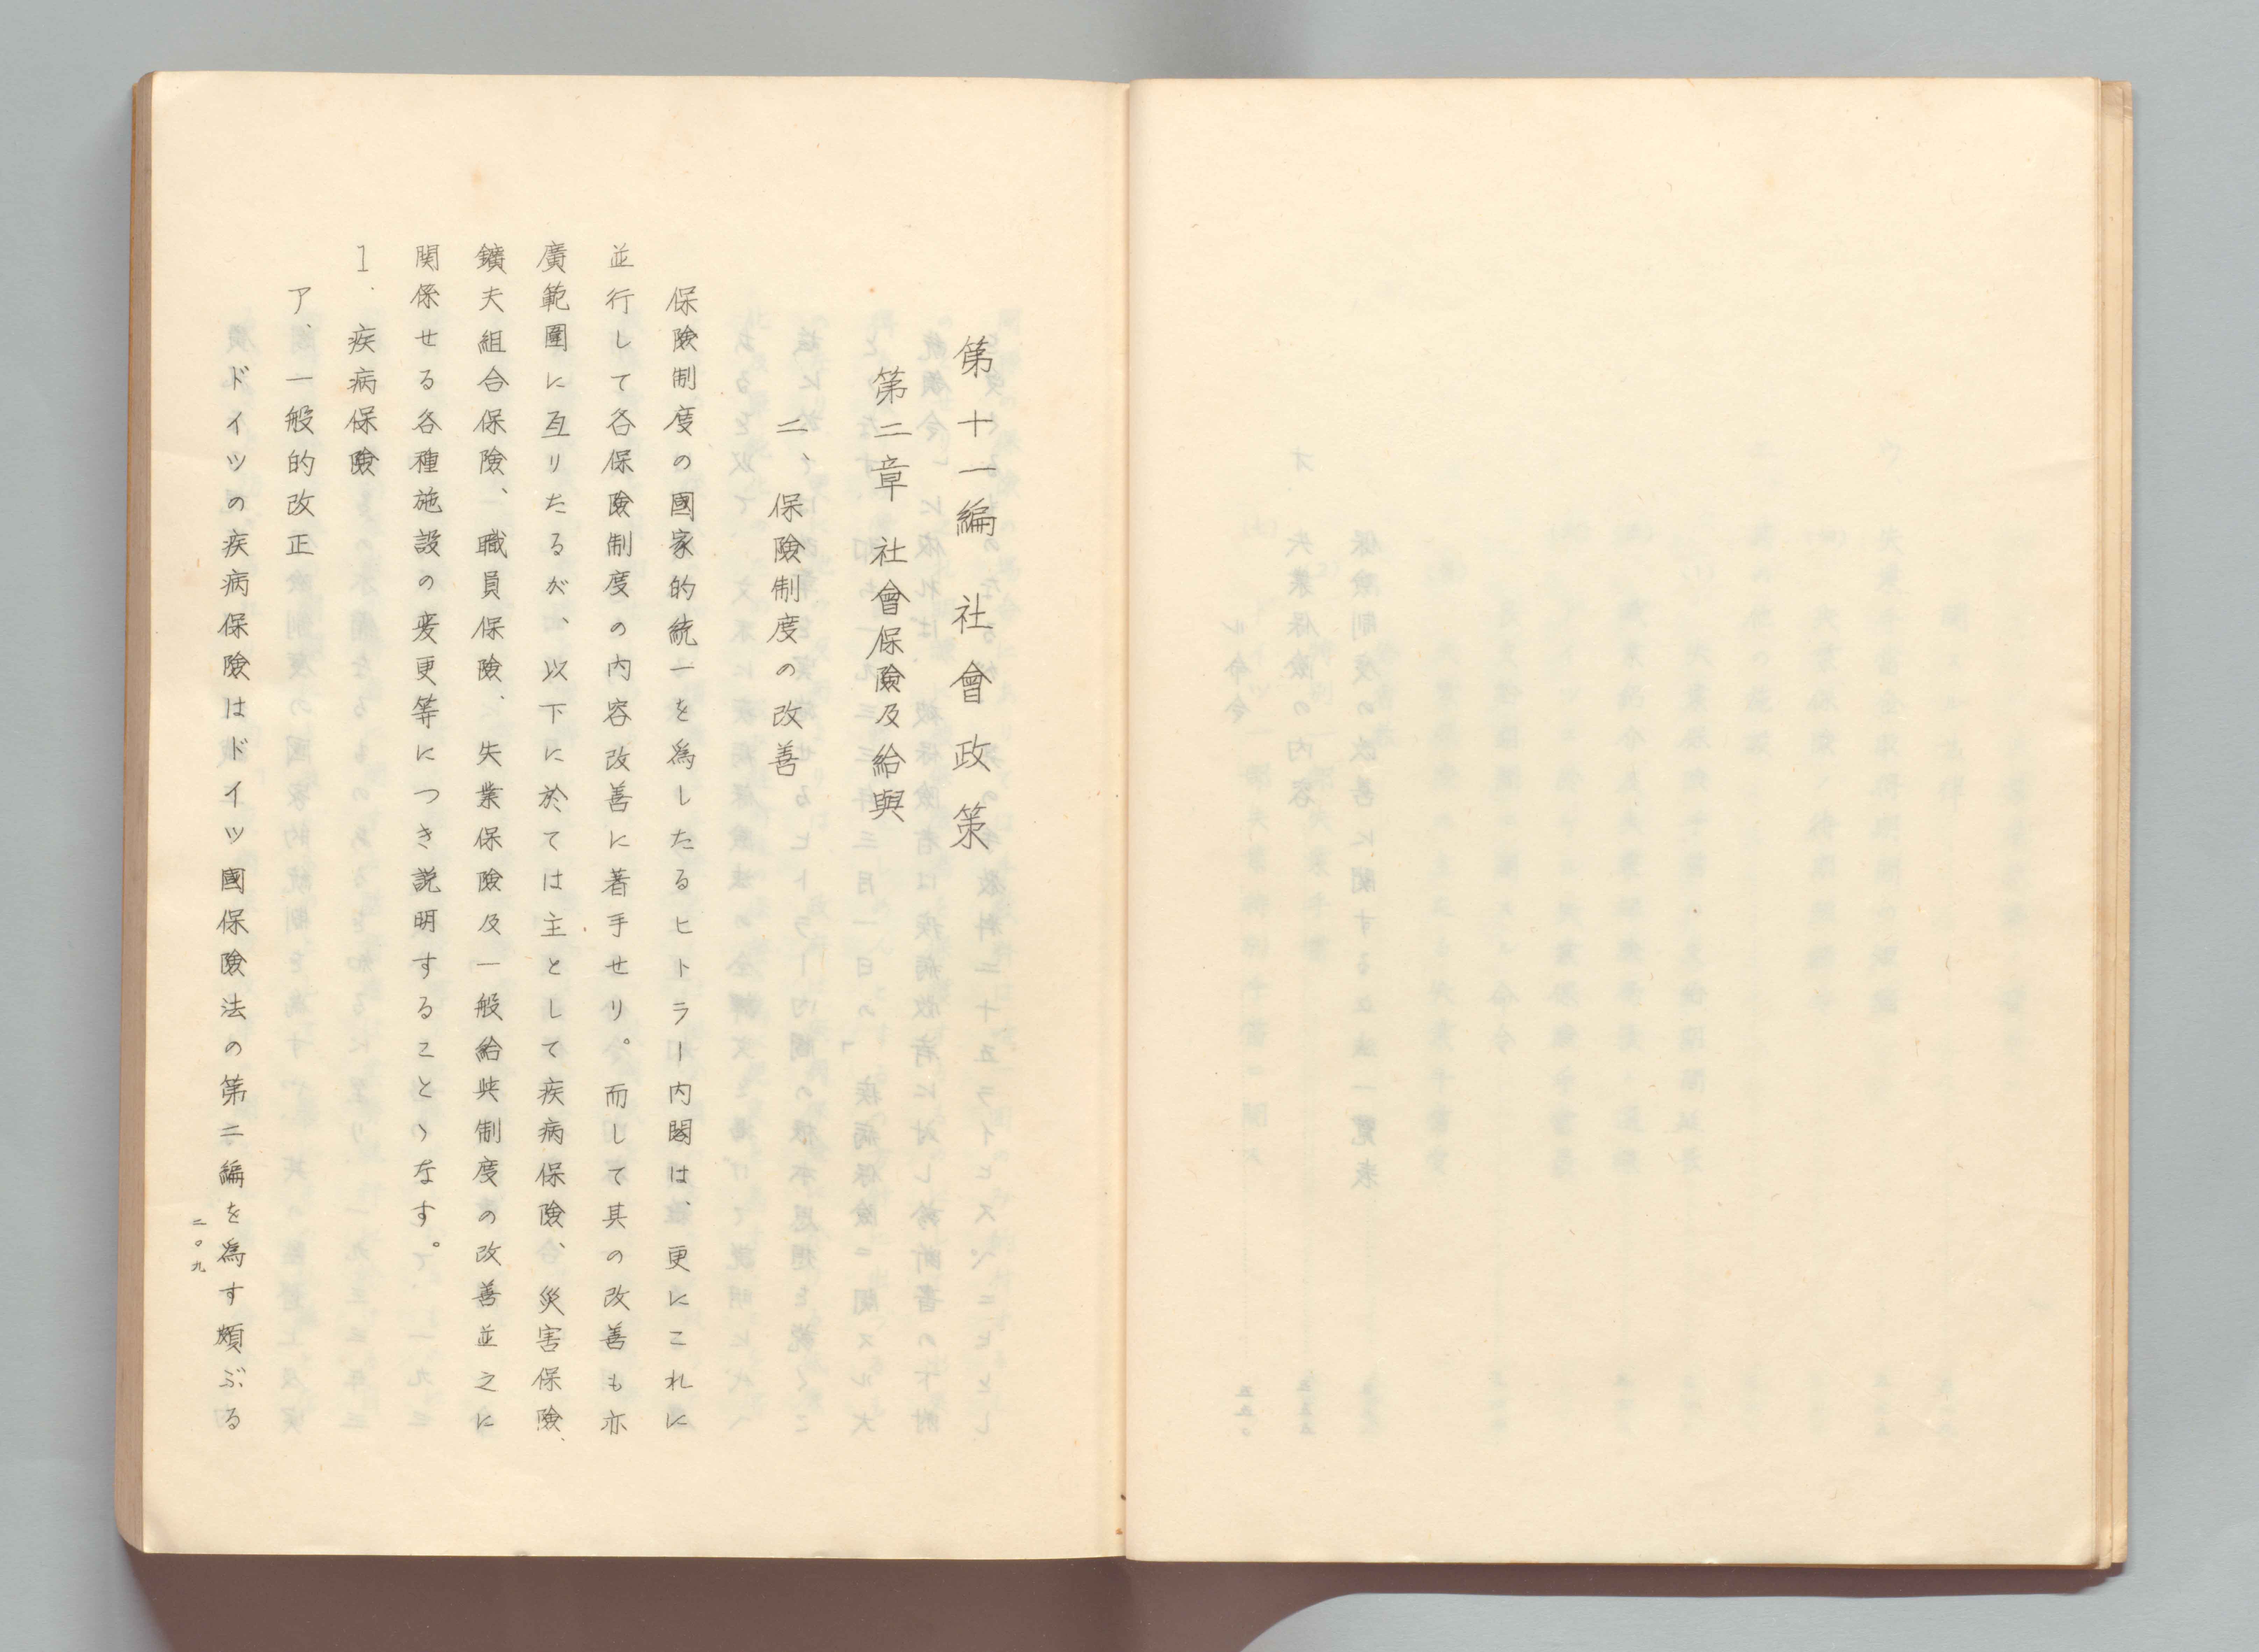 第十一編　社會政策
第二章　社會保險及給與
二、保險制度の改善
保險制度の國家的統一を爲したるヒトラー内閣は、更にこれに
並行して各保險制度の内容改善に著手せり。而して其の改善も亦
廣範圍に亙りたるが、以下に於ては主として疾病保險、災害保險、
鑛夫組合保險、職員保險、失業保險及一般給與制度の改善並之に
関係せる各種施設の変更等につき説明することゝなす。
1.　疾病保險
ア、一般的改正
ドイツの疾病保險はドイツ國保險法の第二編を爲す頗ぶる
二〇九